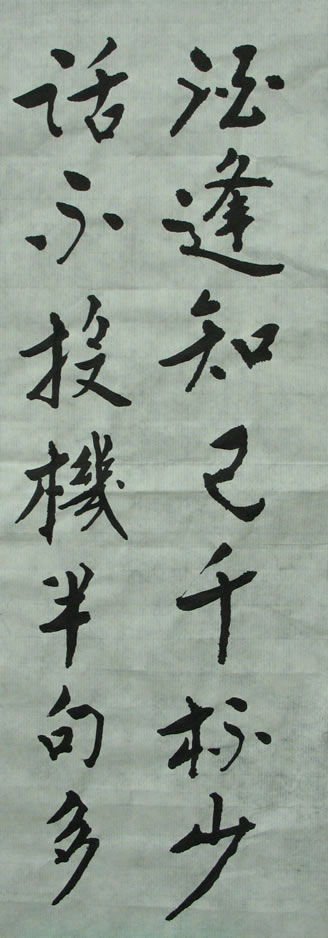 酒逢知己千杯少
話不投機半句多